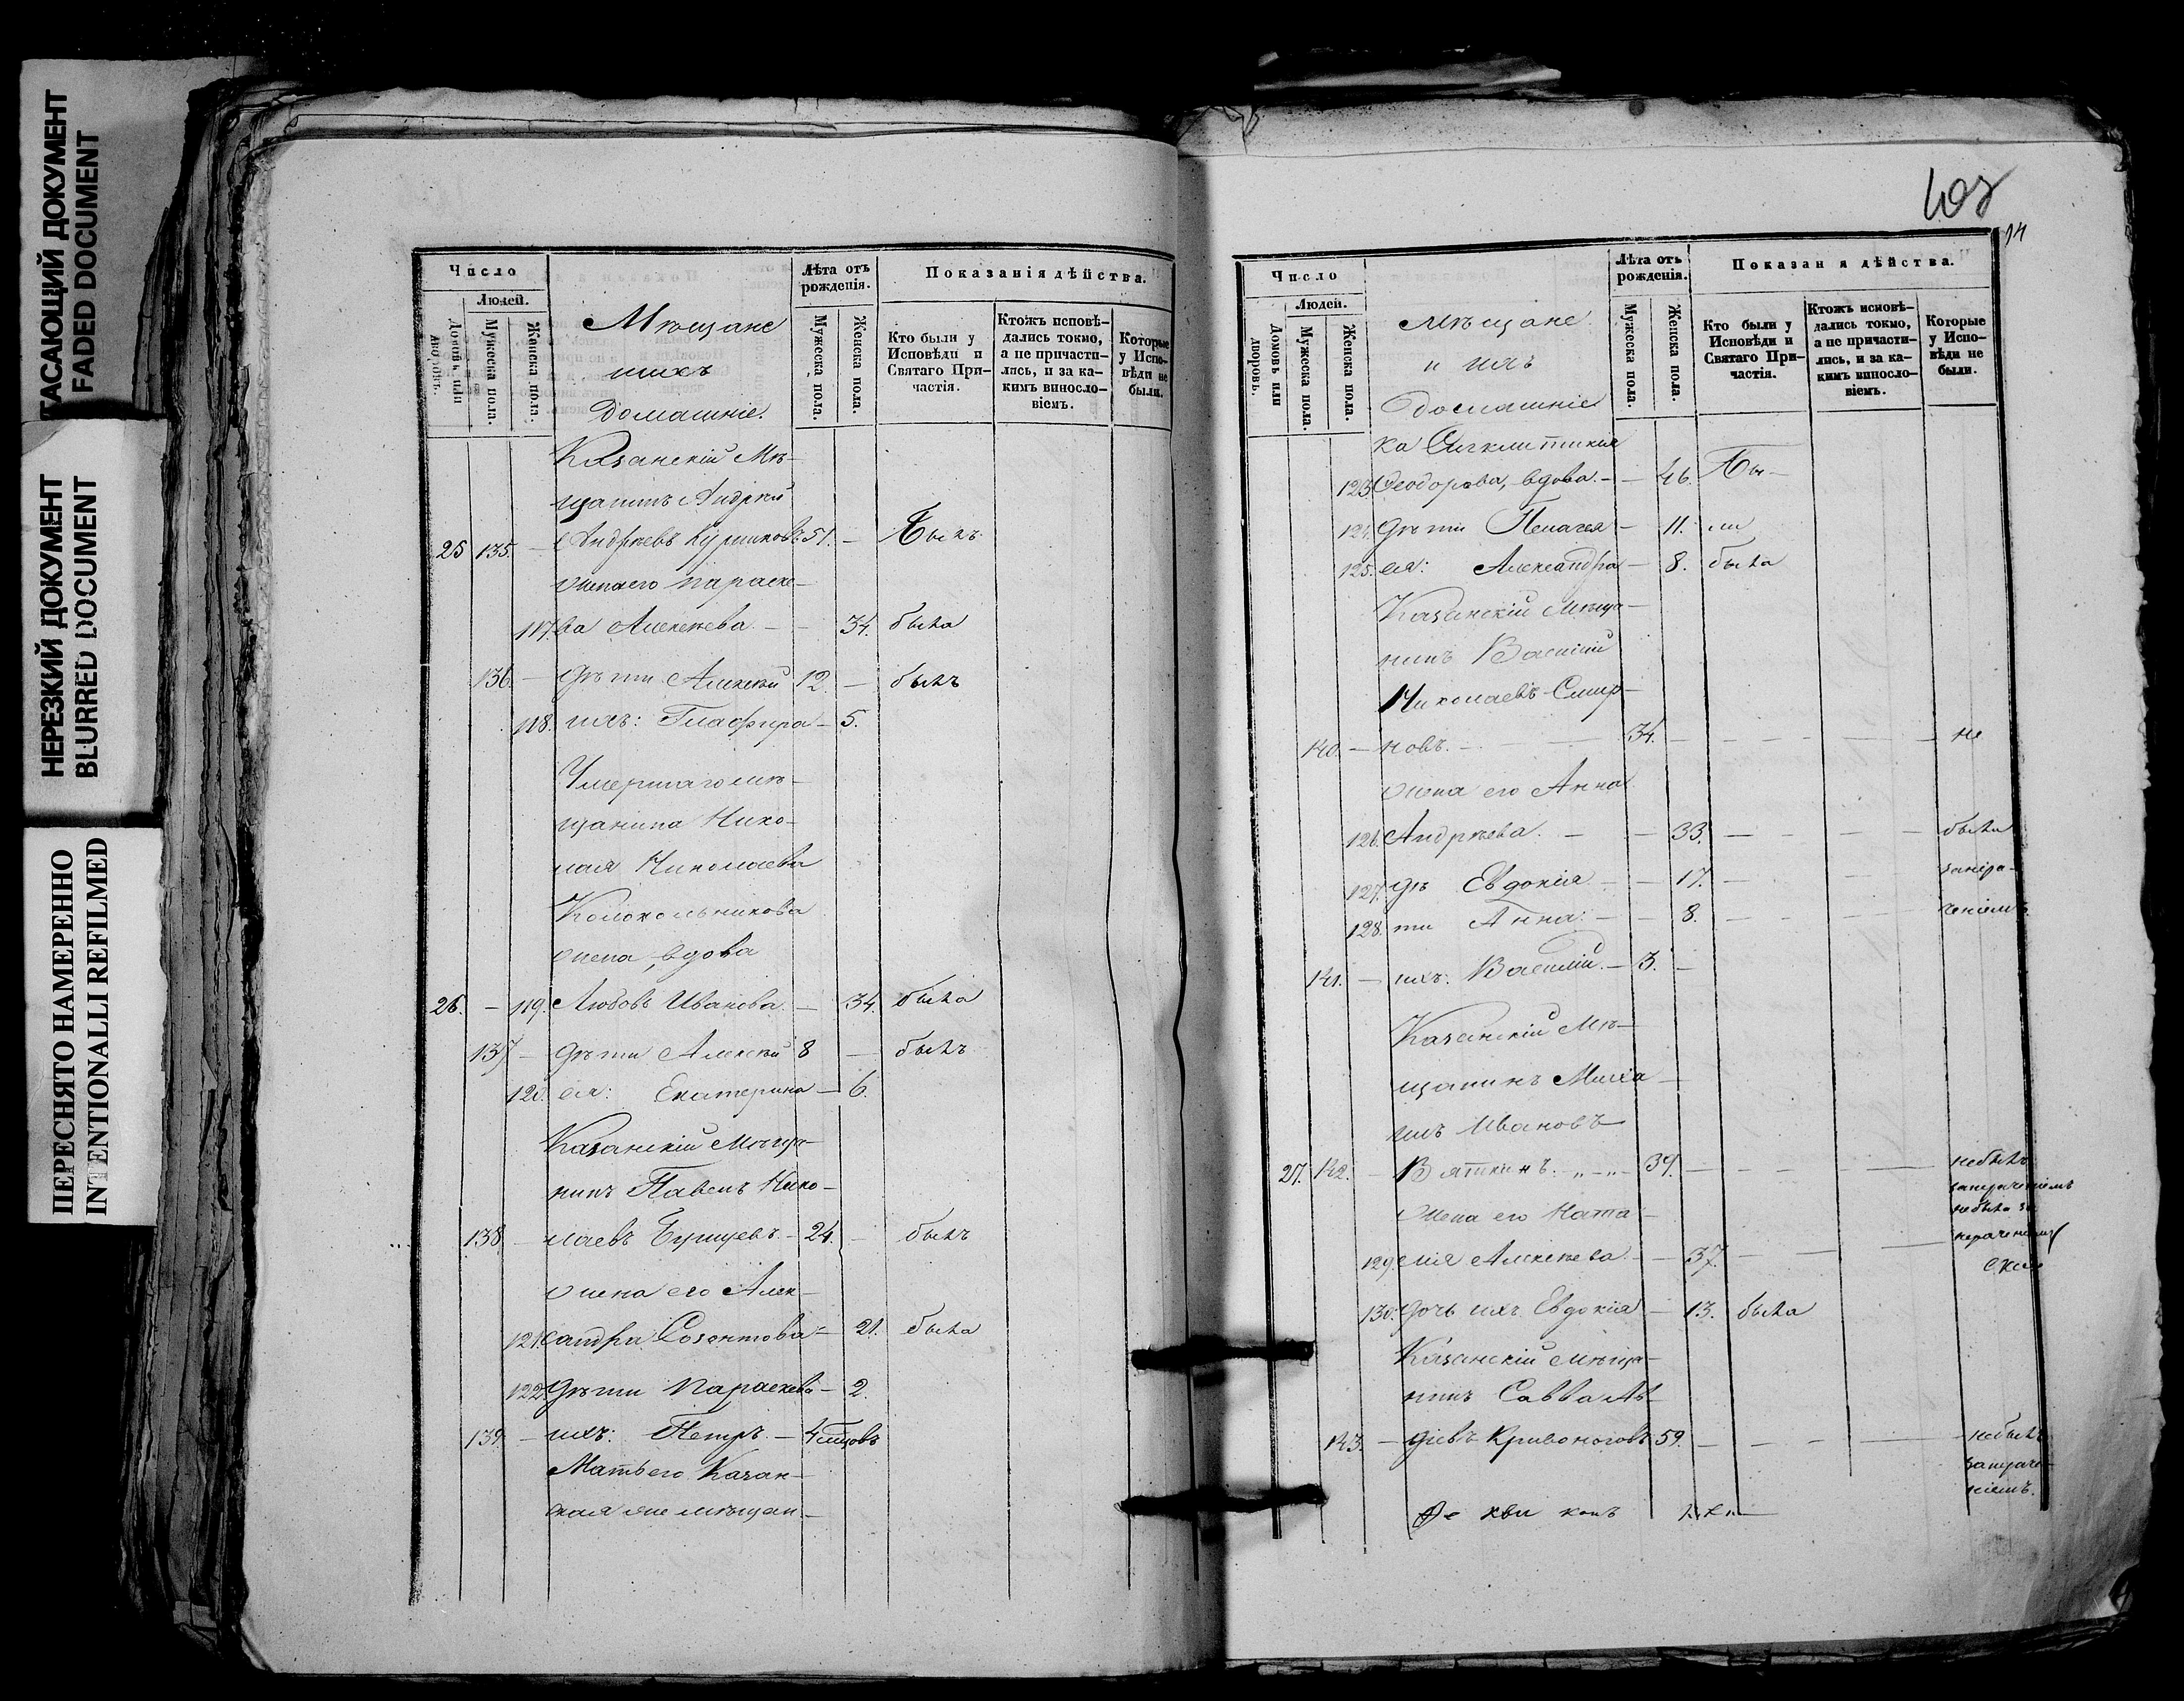 ГАСАЮЩИЙ ДОКУМЕНТ
FADED DOCUMENT
НЕРЕЗКИЙ ДОКУМЕНТ
BLURRED DOCUMENT
ПЕРЕСНЯТО НАМЕРЕННО
INTENTIONALLI REFILMED
Число
Людей.
Домовъ или дворовъ.
Мужеска пола.
Женска пола.
Мѣщане
ихъ
домашніе.
Лѣта отъ рожденія.
Мужеска пола.
Женска пола.
Показанія дѣйства.
Кто были у Исповѣди и Святаго При-частія.
Ктожъ исповѣ-дались токмо, а не причасти-лись, и за ка-кимъ винослo-віемъ.
Которые у Испо-вѣди не были.
Казанскій Мѣ-
щанинъ Андрей
25 135. - Андреевъ 51. - Былъ
жена его Параске-
117. ва Алексѣева - - 34. была
136. - Дѣти Алексѣй 12. - былъ
118. ихъ: Глафира - 5.
Умершаго мѣ-
щанина Нико-
лая Николаева
Колокольникова
жена, вдова
26. - 119. Любовь Иванова. - 34. была
137 - Дѣти Алексѣй 8 - былъ
120. ея: Екатерина - 6.
Казанскій Мѣща-
нинъ Павелъ Нико-
138 - лаевъ - 24. - былъ
жена его Алек-
121. сандра Созонтова - 21. была
122. Дѣти Параскева - 2.
139. - ихъ: Петръ. - 4 мѣсцовъ
Мать его Казан-
ская же мѣщан-
14
Число
Людей.
Домовъ или дворовъ.
Мужеска пола.
Женска пола.
Мѣщане
и ихъ
домашніе
Лѣта отъ рожденія.
Мужеска пола.
Женска пола.
Показан я дѣйства.
Кто были у Исповѣди и Святаго При-частія.
Ктожъ исповѣ-дались токмо, а не причасти-лись, и за ка-кимъ винослo-віемъ.
Которые у Испо-вѣди не были.
ка Синклитикія
123. Ѳеодорова, вдова. - - 46. Бы-
124. Дѣти Пелагея - 11. ли
125. ея: Александра - 8. была
Казанскій мѣща-
нинъ Василій
Николаевъ Смир-
140. - новъ. - 34. - не
жена его Анна
126. Андреева. - - 33. - были
127. Дѣ Евдокія - - 17. - занера-
128. ти Анна: - - 8. - ченіемъ.
141. - ихъ: Василій. - 3. -
Казанскій Мѣ-
щанинъ Миха-
илъ Ивановъ
27. 142. - Вяткинъ. - 39. - небылъ
занераченіемъ
жена его Ната- небыла за
129. лія Алексѣева - - 37. - нераченіемъ
130. Дочь ихъ Евдокія - 13. была
Казанскій мѣща-
нинъ Савва Ав-
143. - діевъ Кривоноговъ 59. - небылъ
занераче-
ніемъ.